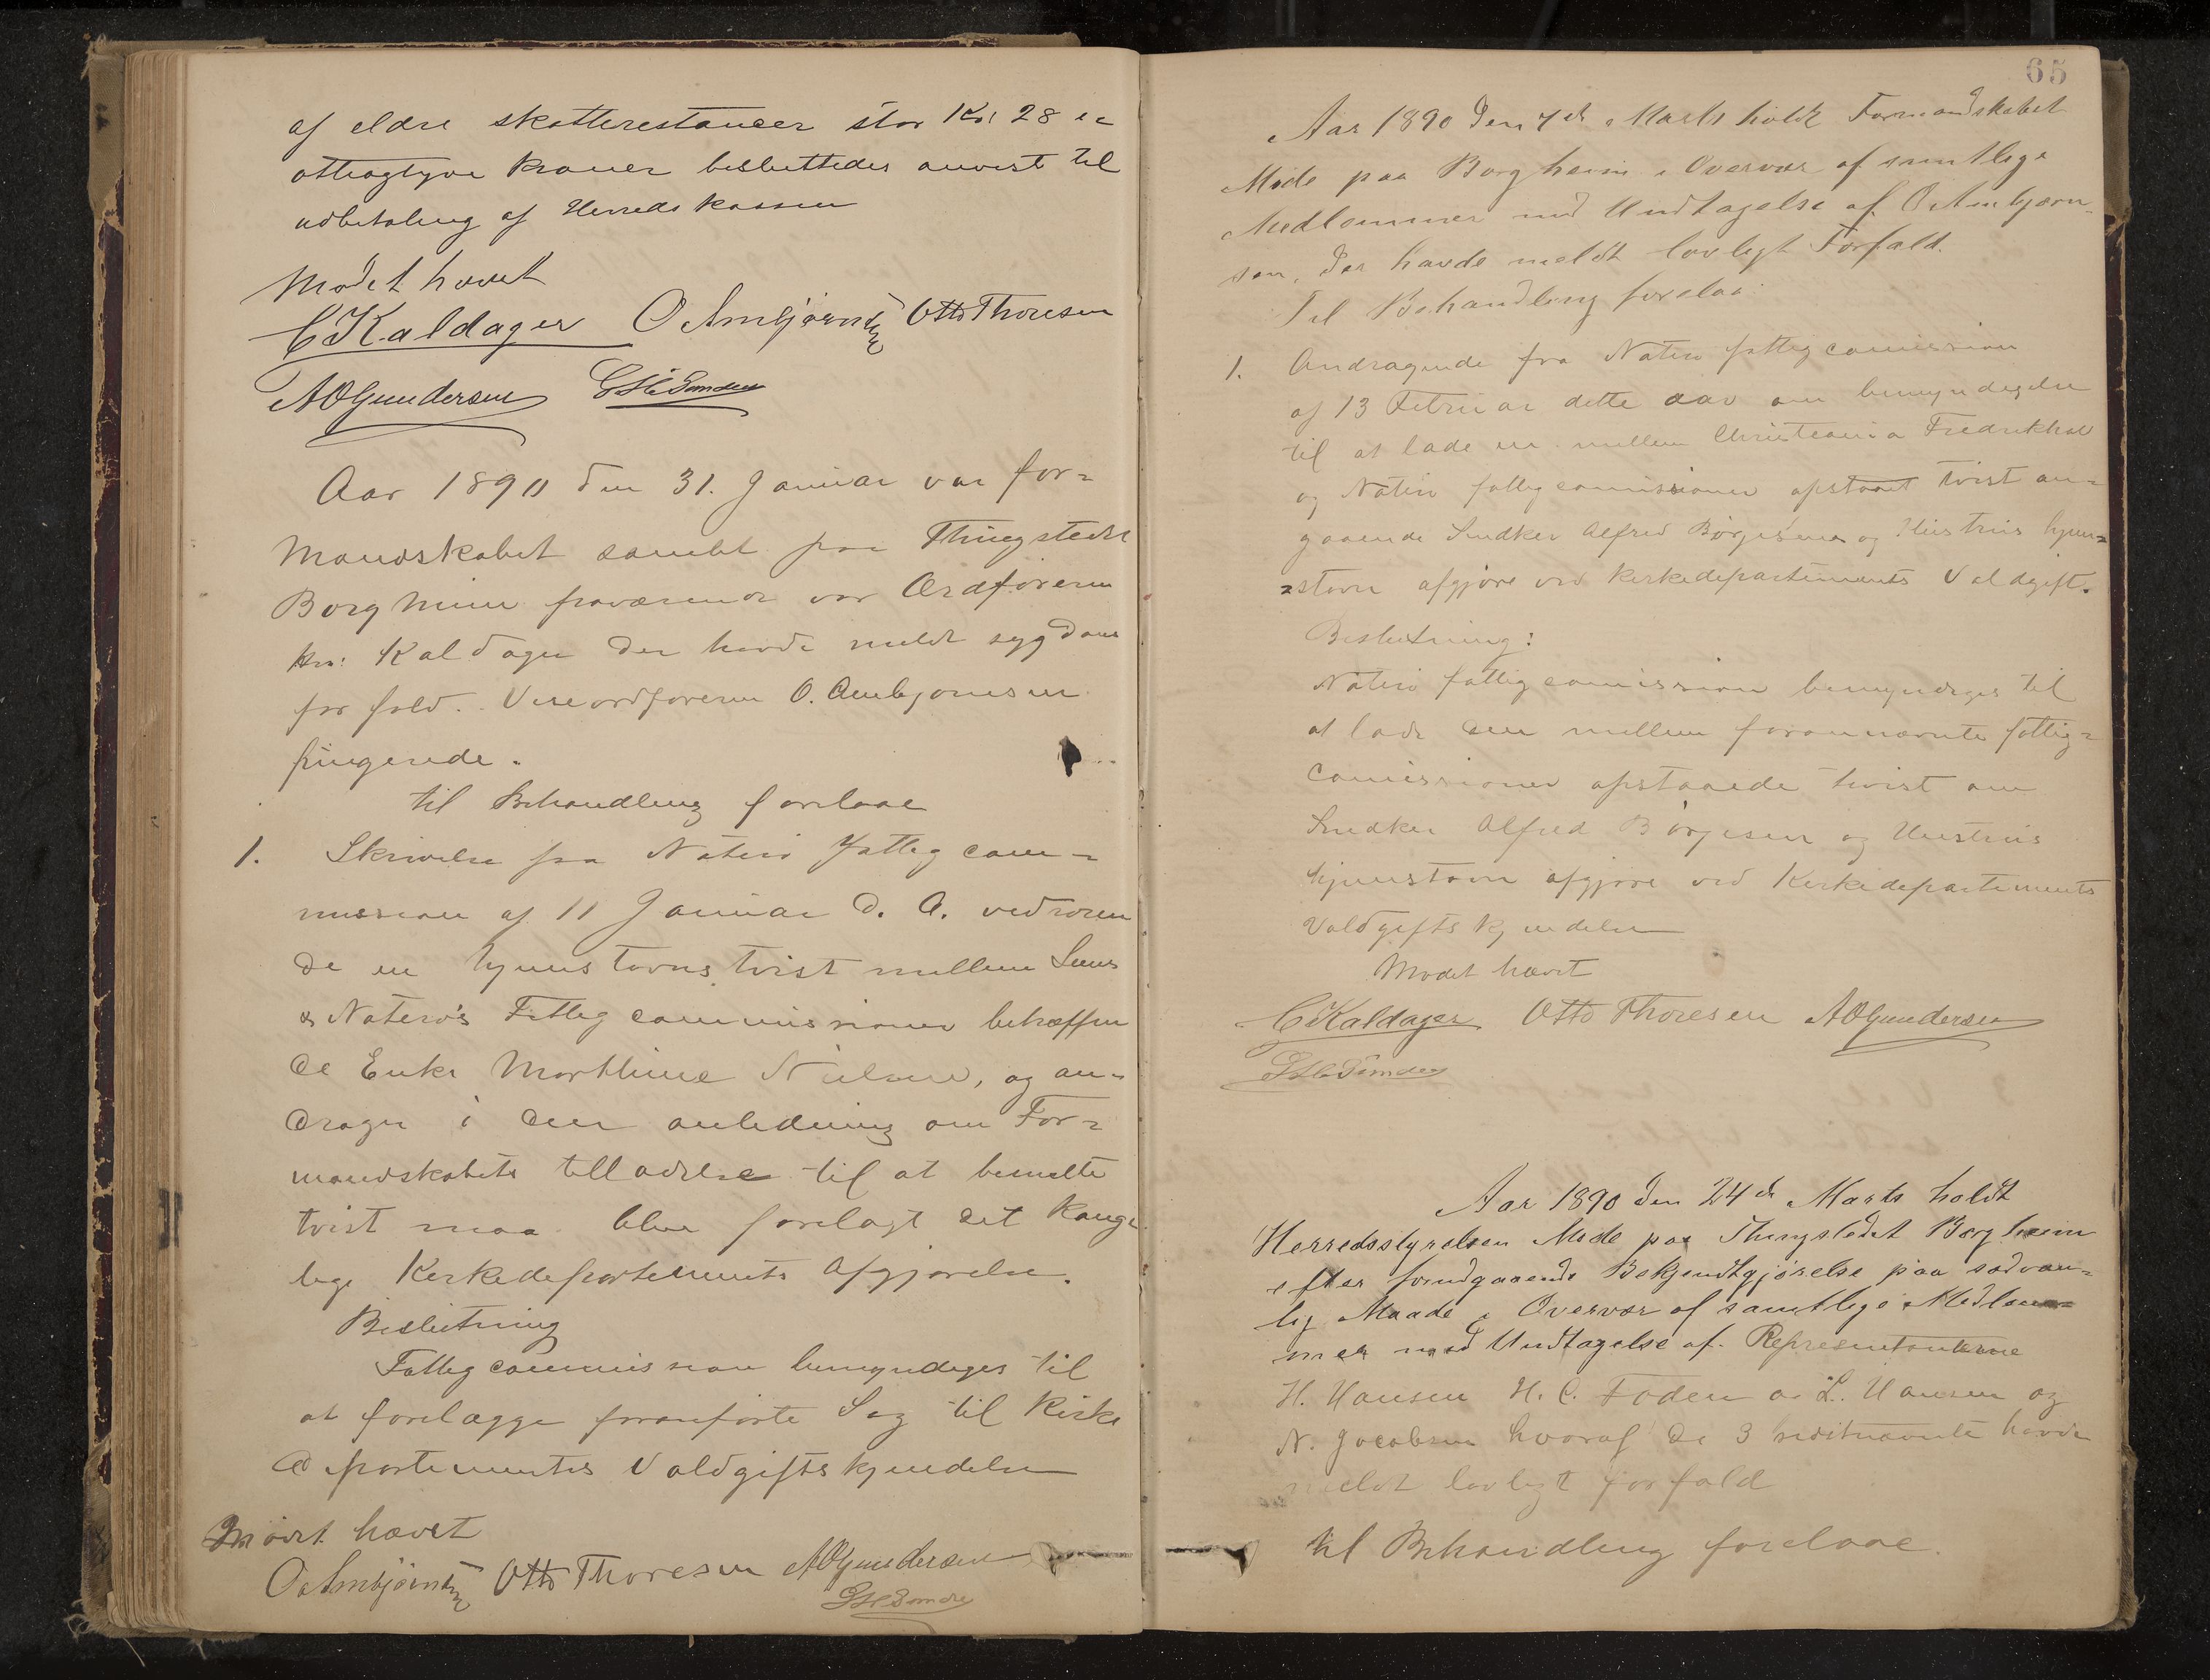 af eldre skatterestancer stor Kr. 28 ::
otteogtyve kroner besluttedes anvist til
udbetaling af Herredskassen
Mødet hævet
C Kaldager O Ambjørnsen Otto Thoresen
A O Gundersen
Aar 1890 den 31. Januar var for=
mandskabet samlet paa Thingstedet
Borgheim fraværende var Ordføreren
Hr: Kaldager der havde meldt sygdoms
forfald. Viceordføreren O. Ambjørnsen
fungerede.
til Behandling forelaae
1. Skrivelse fra Nøterø Fattigcom=
mission af 11 Januar d. A. vedrøren
de en hjemstavnstvist mellem Sems
& Nøterø's Fattigcommissioner betræffen
de Enke Marthine Nielsen, og an=
drager i den anledning om For=
mandskabets tilladelse til at bemelte
tvist maa blive forelagt det Konge
lige Kirkedepartements Afgjørelse.
Beslutning
Fattigcommission bemyndiges til
at forelægge foranførte Sag til Kirke
departementets Voldgiftskjendelse
Mødet hævet
O Ambjørnsen Otto Thoresen A O Gundersen
65
Aar 1890 den 7de Marts holdt Formandskabet
Møde paa Borgheim i Overvær af samtlige
Medlemmer med Undtagelse af O Ambjørn-
sen, der havde meldt lovligt Forfald.
Til Behandling forelaa:
1. Andragende fra Nøterø fattigcomission
af 13 Februar dette aar om bemyndigelse
til at lade en mellem Christiania Fredrikhal
og Nøterø fattigcomissioner opstaaet tvist an=
gaaende Snedker Alfred Børgesens og Hustrus hjem=
=stavn afgjøre ved Kirkedepartements Voldgift.
Beslutning:
Nøterø fattigcomission bemyndiges til
at lade den mellem forannævnte fattig=
comissioner opstaaede tvist om
Snedker Alfred Børgesen og Hustrus
hjemstavn afgjøre ved Kirkedepartements
Voldgifts kjendelse
Mødet hævet
C Kaldager Otto Thoresen A O Gundersen
Aar 1890 den 24de Marts holdt
Herredsstyrelsen Møde paa Thingstedet Borgheim
efter forudgaaende Bekjendtgjørelse paa sædvan=
lig Maade i Overvær af samtlige Medlem=
mer med Undtagelse af Representanterne
H. Hansen H. C. Foden L. Hansen og
N. Jacobsen hvoraf de 3 sidstnævnte havde
meldt lovligt forfald
til Behandling forelaae.